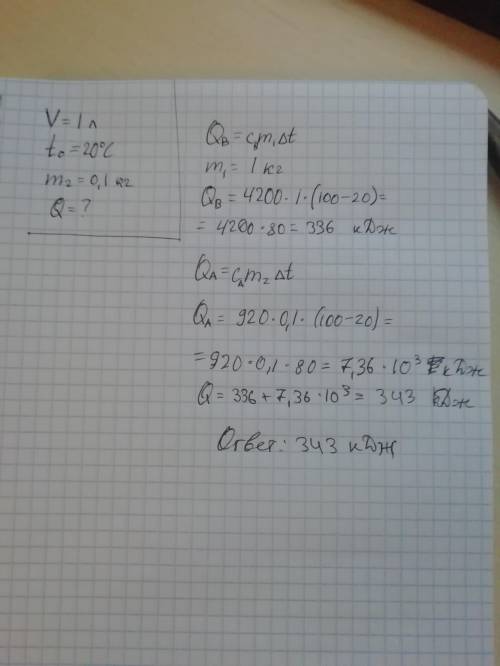 V = 1 л
t₀ = 20°C
m₂ = 0,1 кг
Q = ?
Qв = cвm₁Δt
m₁ = 1 кг
Qв = 4200 · 1 · (100-20) =
= 4200 · 80 = 336 кДж
QА = cАm₂Δt
QА = 920 · 0,1 · (100-20) =
= 920 · 0,1 · 80 = 7,36 · 10³ кДж
Q = 336 + 7,36 · 10³ = 343 кДж
Ответ: 343 кДж